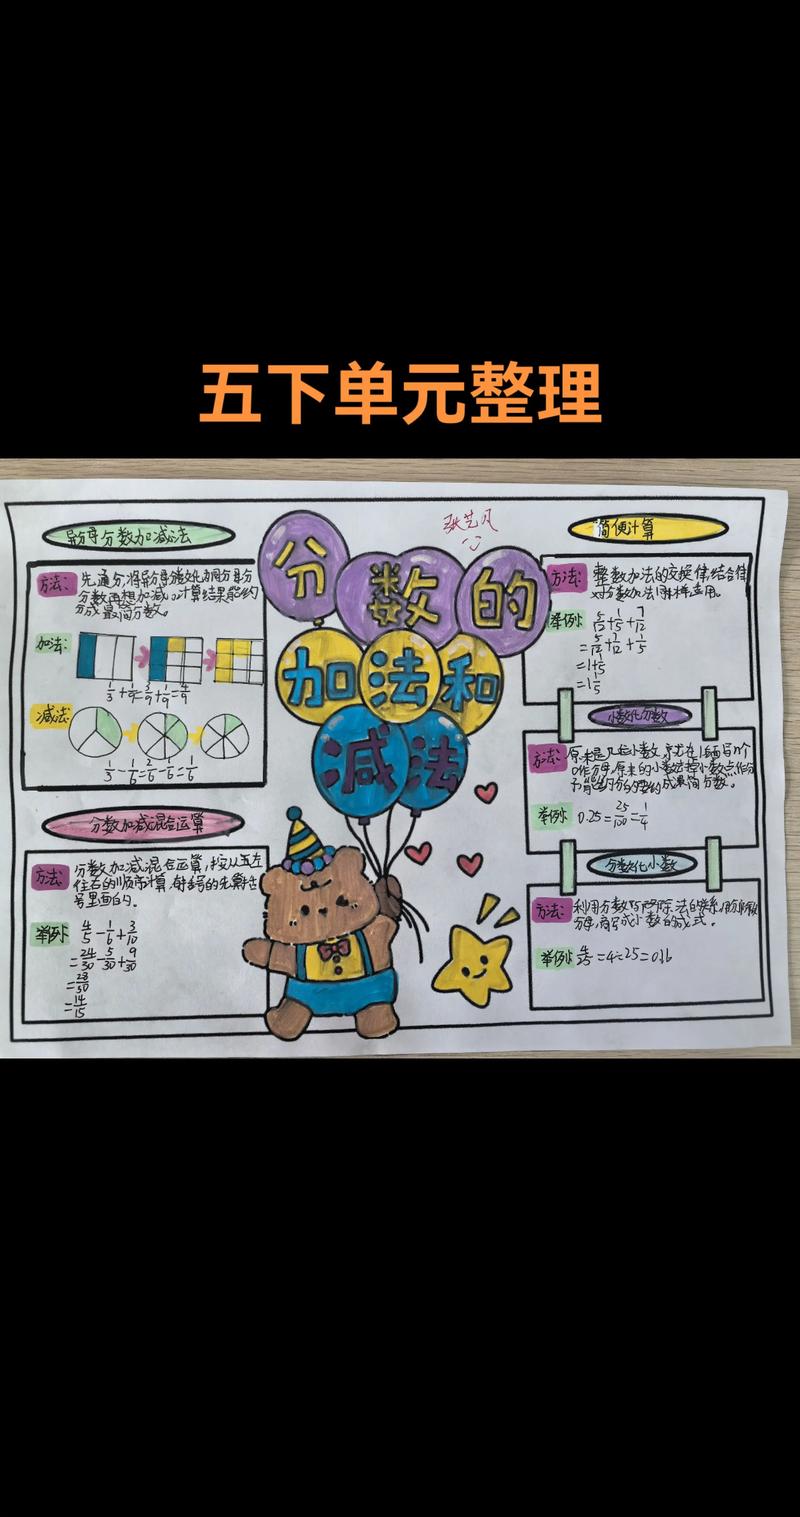 五下单元整理
张艺凡
分数的
加法和
减法
异分母分数加减法
方法:
先通分,将异分母分数化成同分母分
分数再想加减。计算结果能约
分成最简分数。
加法:
1/3+1/9=3/9+1/9=4/9
减法:
1/3-1/6=2/6-1/6=1/6
分数加减混合运算
方法:
分数加减混合运算,按从左
往右的顺序计算,有括号的先算括
号里面的。
举例:
4/5-1/6+3/10
=24/30-5/30+9/30
=28/30
=14/15
简便计算
方法:
整数加法的交换律,结合律
对分数加法同样适用。
举例:
5/12+1/5+7/12
=5/12+7/12+1/5
=1+1/5
=1 1/5
小数化分数
方法:
原来是几位小数,就在1后面写几个
0作分母,原来的小数去掉小数点作分
子,能约分的要约成最简分数。
举例:
0.25=25/100=1/4
分数化小数
方法:
利用分数与除法的关系,用分子除以
分母,商写成小数的形式。
举例:
4/25=4÷25=0.16